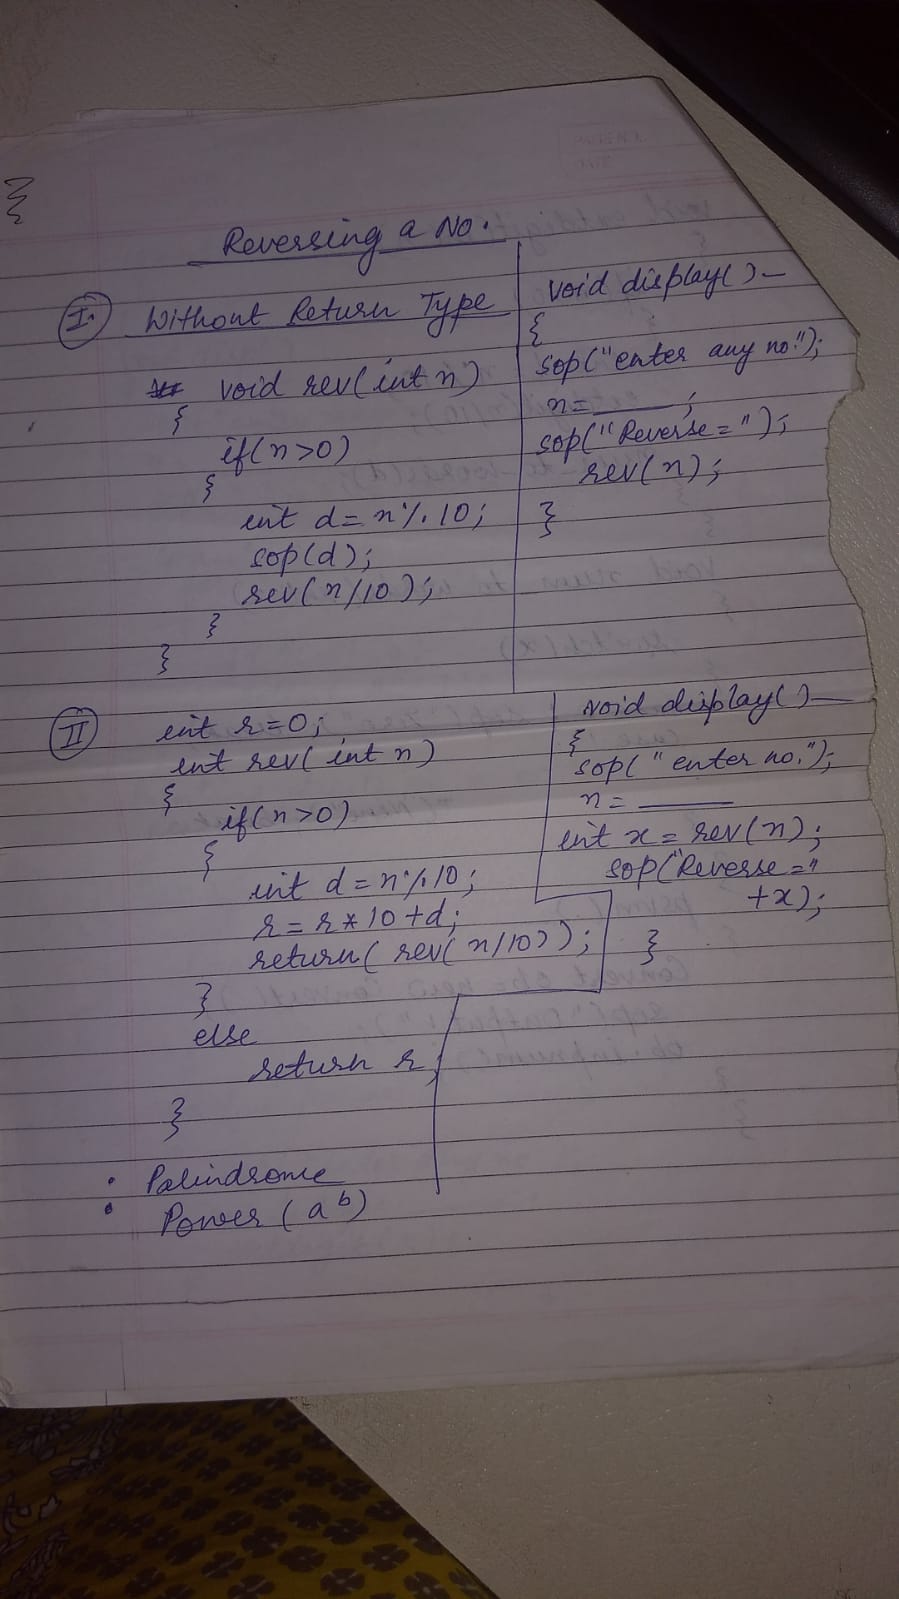 Reversing a No.
I. Without Return Type
void rev(int n)
{
if(n>0)
{
int d=n%10;
sop(d);
rev(n/10);
}
}
void display()
{
sop("enter any no.");
n=____;
sop("Reverse=");
rev(n);
}
II int r=0;
int rev(int n)
{
if(n>0)
{
int d=n%10;
r=r*10+d;
return(rev(n/10));
}
else
return r;
}
void display()
{
sop("enter no.");
n=____
int x=rev(n);
sop("Reverse="
+x);
}
• Palindrome
• Power (aᵇ)